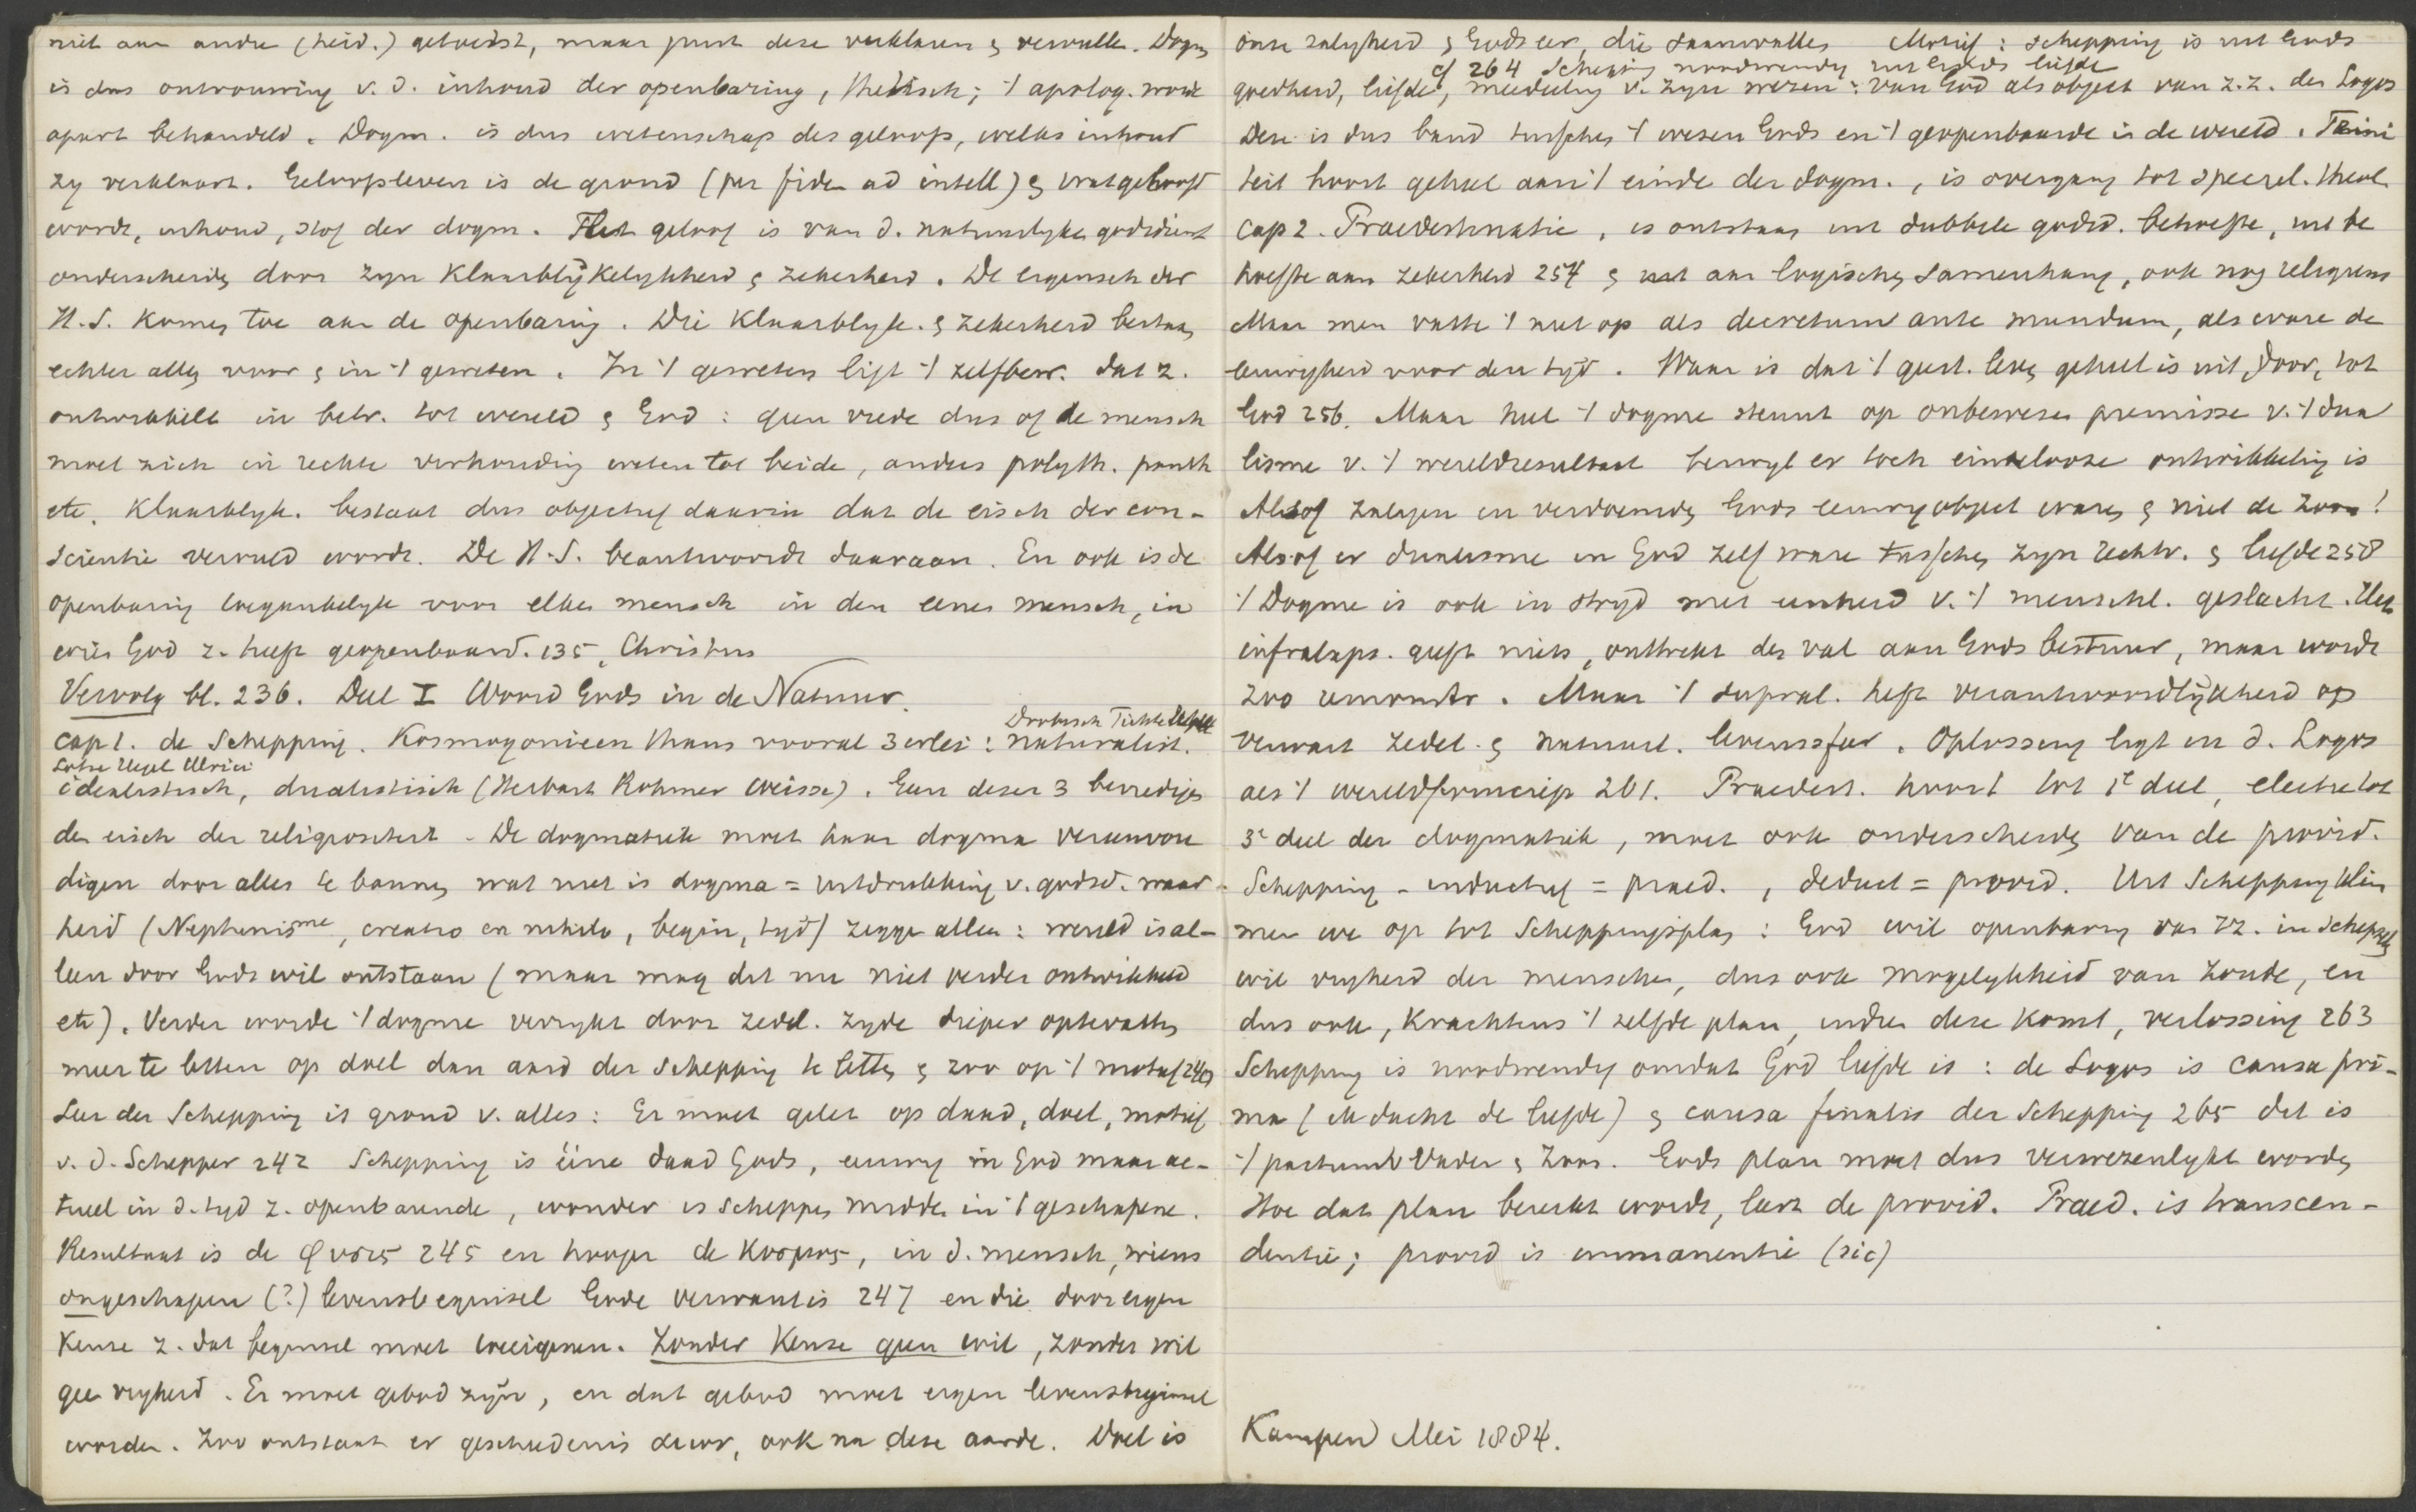 niet aan andre (heid.) getoetst, maar juist deze verklaren & vervullen. Dogm.
is dus ontvouwing v. d. inhoud der openbaring, thetisch; 't apolog. wordt
apart behandeld. Dogm. is dus wetenschap des geloofs, welks inhoud
zy verklaart. Geloofsleven is de grond (per fidem ad intell) & wat geloofd
wordt, inhoud, stof der dogm. Het geloof is van d. natuurlyken godsdienst
onderscheiden door zyn klaarblijkelykheid & zekerheid. De eigensch der
H.S. komen toe aan de openbaring. Die klaarblyk. & zekerheid bestaan
echter alleen voor & in 't geweten. In 't geweten ligt 't zelfbew. dat z.
ontwikkelt in betr. tot wereld & God: geen vrede dus of de mensch
moet zich in rechte verhouding weten tot beide, anders polyth. panth
etc. Klaarblyk. bestaat dus objectief daarin dat de eisch der con-
scientie vervuld wordt. De H.S. beantwoordt daaraan. En ook is de
openbaring toegankelyk voor elken mensch in den eenen mensch, in
wien God z. heeft geopenbaard. 135, Christus
Vervolg bl. 236. Deel I Woord Gods in de Natuur.
Drobisch Fichte
cap 1. de Schepping. Kosmogonieen thans vooral 3erlei: naturalist.
Lotze Hegel Ulrici
idealistisch, dualistisch (Herbart Rohmer Weisse). Geen dezer 3 bevredigen
den eisch der religiositeit. De dogmatiek moet haar dogma vereenvou
digen door alles te bannen wat niet is dogma = uitdrukking v. godsd. waar-
heid (Neptunisme, creatio ex nihilo, begin, tyd) zegge alleen: wereld is al-
leen door Gods wil ontstaan (maar mag dit nu niet verder ontwikkeld
etc). Verder worde 't dogma verrykt door zedel. zyde dieper optevatten
meer te letten op doel dan aard der schepping te letten & zoo op 't motief 240
Leer der Schepping is grond v. alles: Er moet gelet op daad, doel, motief
v. d. Schepper 242 Schepping is éene daad Gods, eeuwig in God maar ac-
tueel in d. tyd z. openbarende, wonder is scheppen midden in 't geschapene.
Resultaat is de φυσις 245 en hooger de κοσμος, in d. mensch, wiens
ongeschapen (?) levensbeginsel Gode verwant is 247 en die door eigen
keuze z. dat beginsel moet toeeigenen. Zonder keuze geen wil, zonder wil
geen vryheid. Er moet gebod zijn, en dat gebod moet eigen levensbeginsel
worden. Zoo ontstaat er geschiedenis door, ook na deze aarde. Doel is
onze zaligheid & Gods eer, die saamvallen Motief: schepping is uit Gods
cf 264 Schepping noodwendig uit Gods liefde
goedheid, liefde, meedeeling v. zyn wezen: van God als object van z.z. den Logos
Deze is dus band tusschen 't wezen Gods en 't geopenbaarde in de wereld. Trini
teit hoort geheel aan 't einde der dogm., is overgang tot specul. theol.
Cap 2. Praedestinatie, is ontstaan uit dubbele godsd. behoefte, uit be
hoefte aan zekerheid 254 & aan logischen samenhang, ook nog religieus
Maar men vatte 't niet op als decretum ante mundum, als ware de
eeuwigheid voor den tyd. Waar is dat 't geest. leven geheel is uit, door, tot
God 256. Maar heel 't dogme steunt op onbewezen premisse v. 't dua
lisme v. 't wereldresultaat terwyl er toch eindelooze ontwikkeling is
Alsof zaligen en verdoemden Gods eeuwig object waren & niet de Zoon!
Alsof er dualisme in God zelf ware tusschen zyn rechtv. & liefde 258
't Dogme is ook in stryd met eenheid v. 't menschel. geslacht. Het
infralaps. geeft niets, onttrekt den val aan Gods bestuur, maar wordt
zoo remonstr. Maar 't supral. heft verantwoordlijkheid op
verwart zedel. & natuurl. levenssfeer. Oplossing ligt in d. Logos
als 't wereldprincip 261. Praedest. hoort tot 1e deel, electie tot
3e deel der dogmatiek, moet ook onderscheiden van de provid.
Schepping - inductief = praed., deduct = provid. Uit Schepping klim
men we op tot Scheppingsplan: God wil openbaring van zz. in schepsels
wil vryheid der menschen, dus ook mogelykheid van zonde, en
dus ook, krachtens 't zelfde plan, indien deze komt, verlossing 263
Schepping is noodwendig omdat God liefde is: de Logos is causa pri-
ma (edacht de liefde) & causa finalis der Schepping 265 dit is
't pactum Vader & Zoon. Gods plan moet dus verwezenlykt worden
Hoe dat plan bereikt wordt, leert de provid. Praed. is transcen-
dentie; provid is immanentie (sic)
Kampen Mei 1884.